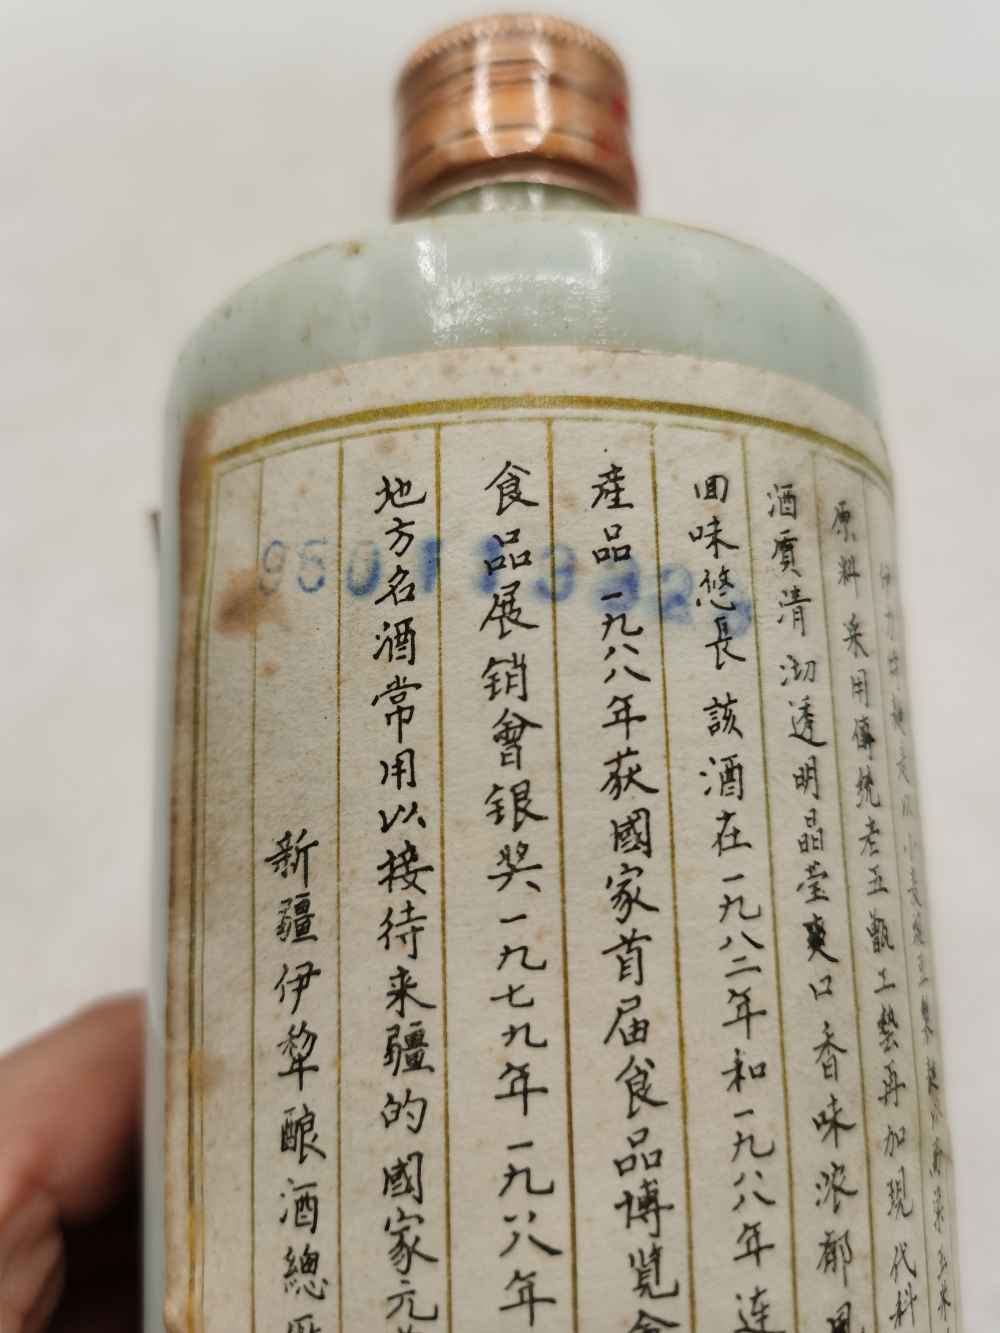 原料采用傳統老五甑工藝再加現代科
酒質清沏透明晶莹爽口香味浓郁
回味悠長該酒在一九八二年和一九八八年连
產品一九八八年获國家首届食品博览会
食品展销會银奖一九七九年一九八年
地方名酒常用以接待来疆的國家元
新疆伊犂酿酒總